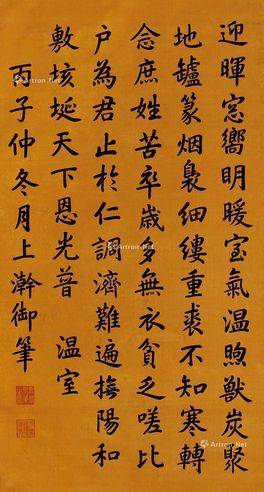 迎暉窓嚮明暖室氣温煦獸炭聚
地罏篆烟裊細縷重裘不知寒轉
念庶姓苦卒歲多無衣貧乏嗟比
户為君止於仁調濟難遍撫陽和
敷垓埏天下恩光普 温室
丙子仲冬月上澣御筆
Artron.Net
Artron.Net
Artron.Net
Artron.Net